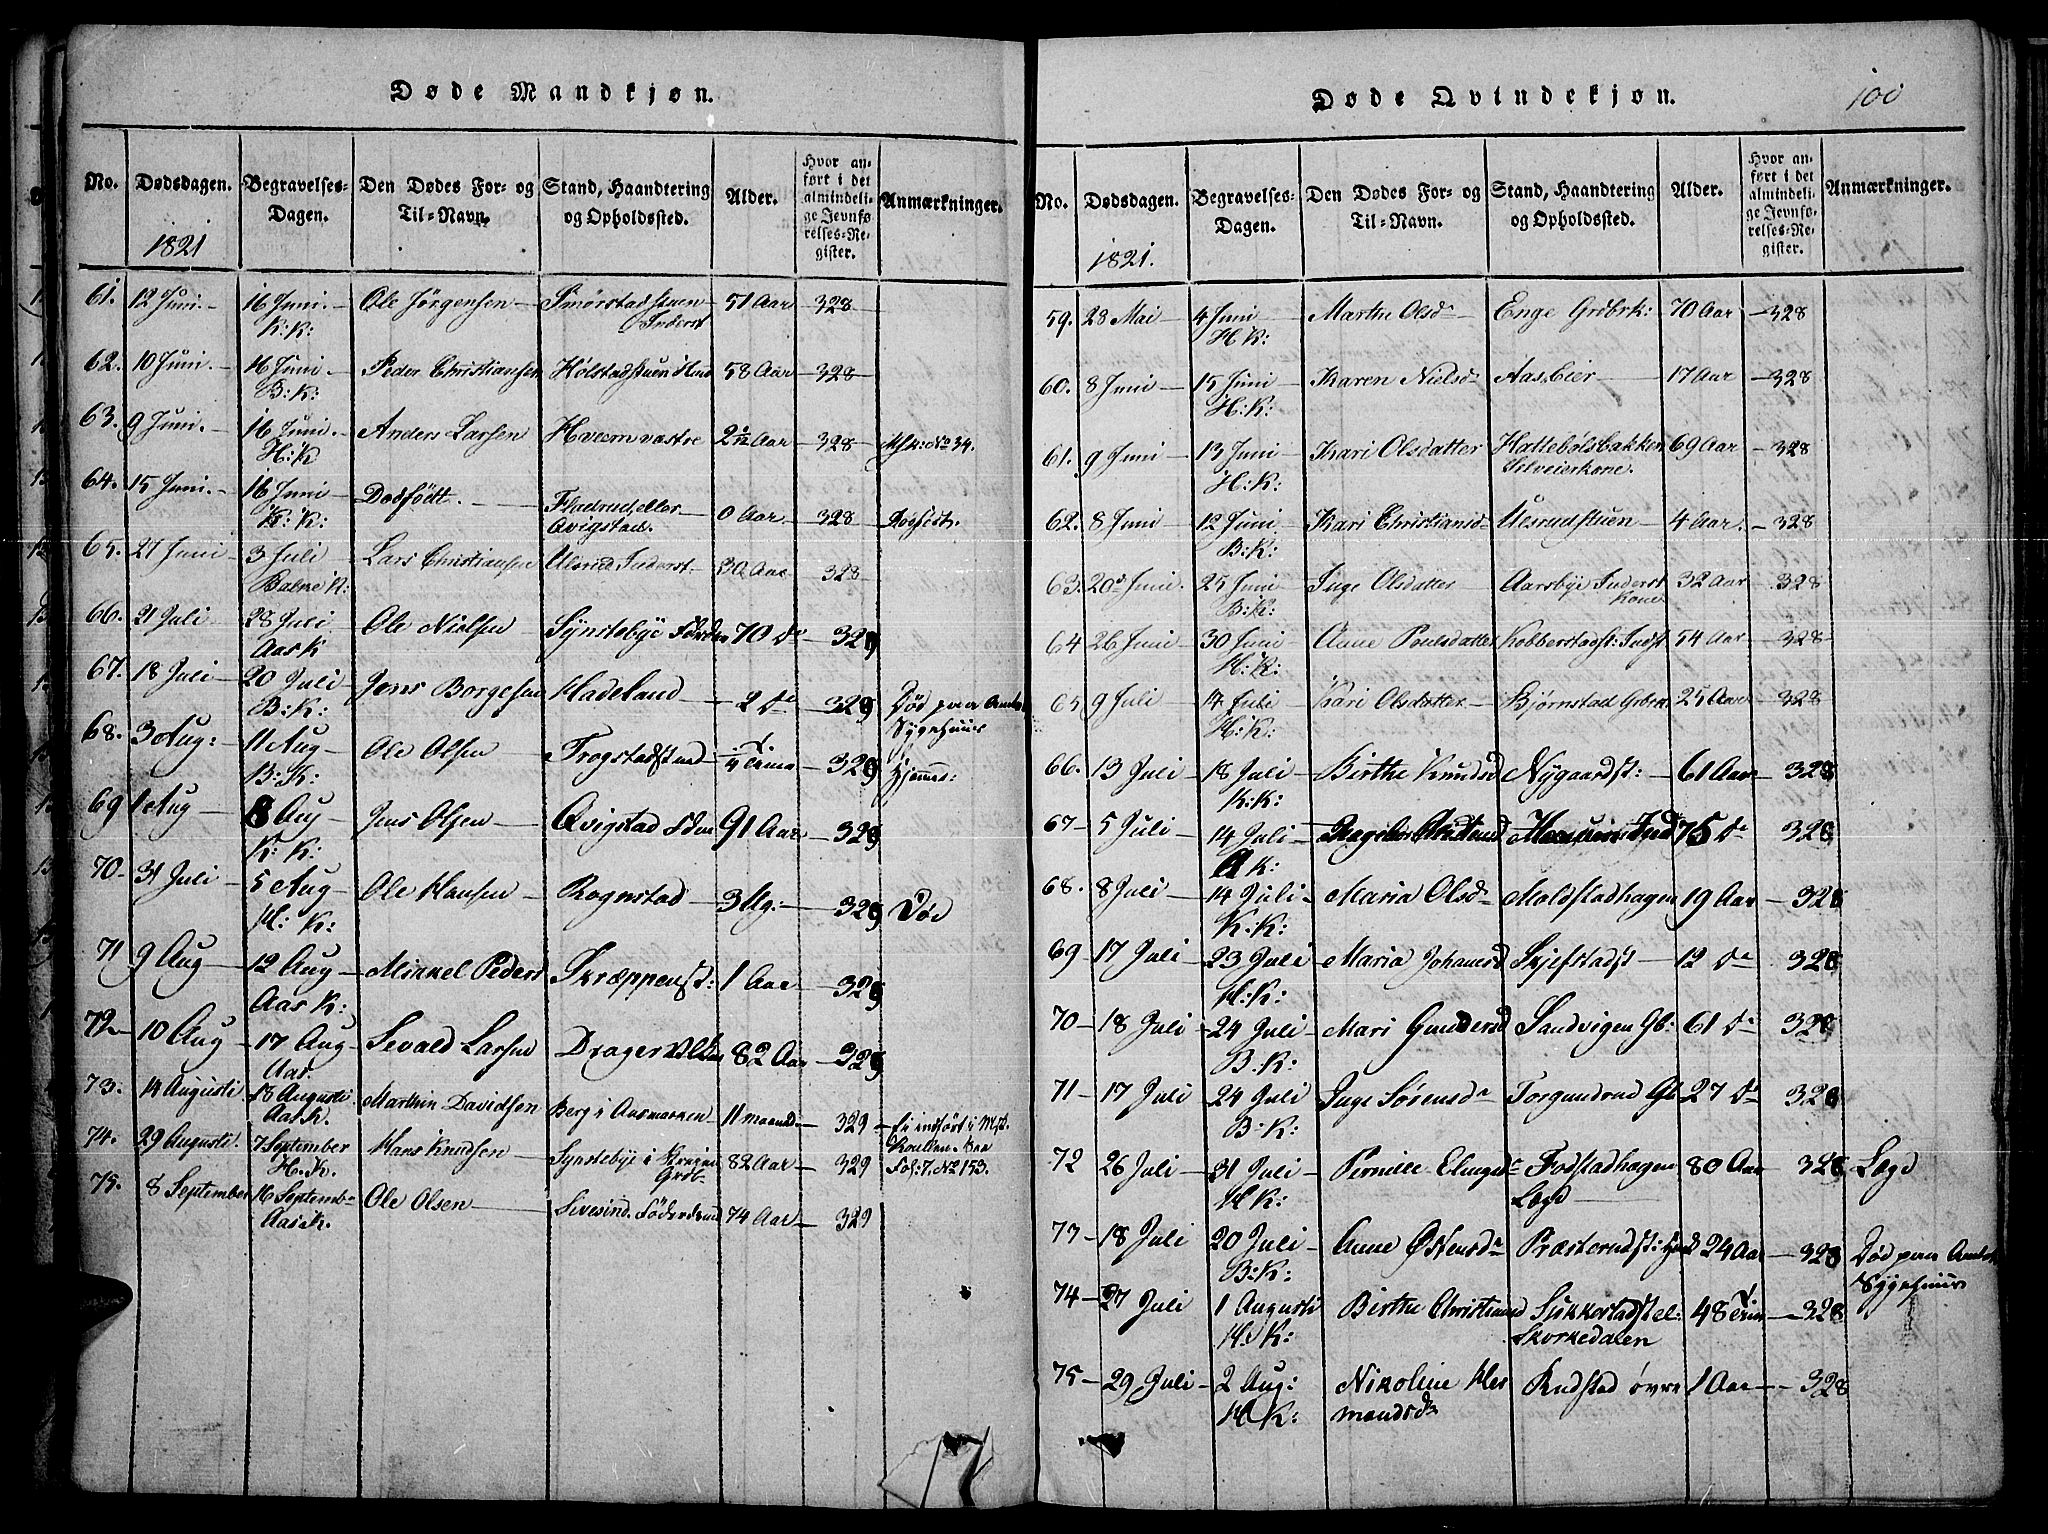 Døde Mandkjøn.
No. Dødsdagen. Begravelses-Dagen. Den Dødes For- og Til-Navn. Stand, Haandtering og Opholdssted. Alder. Hvor anført i det almindelige Jevnførelses-Register. Anmærkninger.
1821
61. 12 Juni. 16 Juni. Ole Jörgensen Smörstadstuen 51 Aar 328
K: K: Inderst
62. 10 Juni. 16 Juni. Peder Christiansen Holstadstuen 58 Aar 328
B: K:
63. 9 Juni. 16 Juni. Anders Larsen Hveem vestre Aar 328 No 34.
H: K
64. 15 Juni. 16 Juni Dødfödt. Fladrud eller 0 Aar 328
K: K: Avigstad.
65. 27 Juni 3 Juli Lars Christiansen Alsrud Inderst. 30 Aar 328
Balke K:
66. 21 Juli 28 Juli Ole Nielsen Synstebye 70 De 329
Aas K
67. 18 Juli 20 Juli Jens Borgesen Hadeland 2 De 329 Död paa Amtets
B: K: Sygehuus
68. 3 Aug: 11 Aug Ole Olsen Trogstadstuen 4 329 Hjemme:
B: K:
69 1 Aug 8 Aug Jens Olsen Qvigstad 91 Aar 329
K: K:
70 31 Juli 5 Aug Ole Hansen Rognstad 3 Ug: 329 Döe
H: K:
71 9 Aug 12 Aug Mikkel Peders Skræppenst: 1 Aar 329
Aas K:
72 10 Aug 17 Aug Sevald Larsen 82 Aar 329
Aas.
73. 14 Augusti 18 Augusti Marthin Davidsen Berg i Aasmarken 11 maaned. 329 Ei indfört i
Aas K.
74. 29 Augusti. 7 September Hans Knudsen Synstebye i 82 Aar 329 Fol: 7. No 153.
H. K.
75. 8 September 16 Septembr Ole Olsen Sivesind. 74 Aar 329
Aas K.
Døde Qvindekjøn.
100
No. Dødsdagen. Begravelses-Dagen. Den Dødes For- og Til-Navn. Stand, Haandtering og Opholdssted. Alder. Hvor anført i det almindelige Jevnførelses-Register. Anmærkninger.
1821.
59. 28 Mai 4 Juni Marthe Olsdr Enge Grdbrk: 70 Aar 328
H K:
60. 8 Juni 15 Juni Karen Nielsdr Aas Eier 17 Aar 328
H: K:
61. 9 Juni 13 Juni Kari Olsdatter Hattebölsbakken 69 Aar 328
H: K: Selveierkone.
62. 8 Juni 12 Juni Kari Christiansd 4 Aar. 328
B: K:
63. 20 Juni. 25 Juni Inge Olsdatter Aarsbye Inderst 32 Aar 328
B: K: Kone
64 26 Juni 30 Juni Anne Poulsdatter Kobberstadst: Indst 54 Aar 328
H: K:
65 9 Juli 14 Juli Kari Olsdatter Bjørnstad 25 Aar 328
H: K:
66. 13 Juli 18 Juli Birthe Knudsd Nygaardst: 61 Aar 328
K: K:
67 5 Juli 14 Juli 75 De 328
A K:
68. 8 Juli 14 Juli Maria Olsdr Moldstadhagen 19 Aar 328
K: K:
69 17 Juli 23 Juli Maria Johannesd Skjefstadst 12 De 328
H: K:
70 18 Juli 24 Juli Mari Gundersd Sandvigen Gb: 61 De 328
B. K:
71 17 Juli 24 Juli Inge Sörensdr Torgundrud Gb 27 De 328
B: K:
72 26 Juli 31 Juli Pernille Fodstadhagen 80 Aar 328 Lægd
H K: Lægd
73 18 Juli 20 Juli Anne Østensdr Præsterudst: 24 Aar 328 Död paa Amtets
B: K: Sygehuus
74 27 Juli 1 Augusti Birthe Christiansd Sukkestadst el: 48 328
H: K: Skorkedalen
75 29 Juli 2 Aug: Nikoline Her Rudstad övre 1 Aar 328
H K: mandsdr